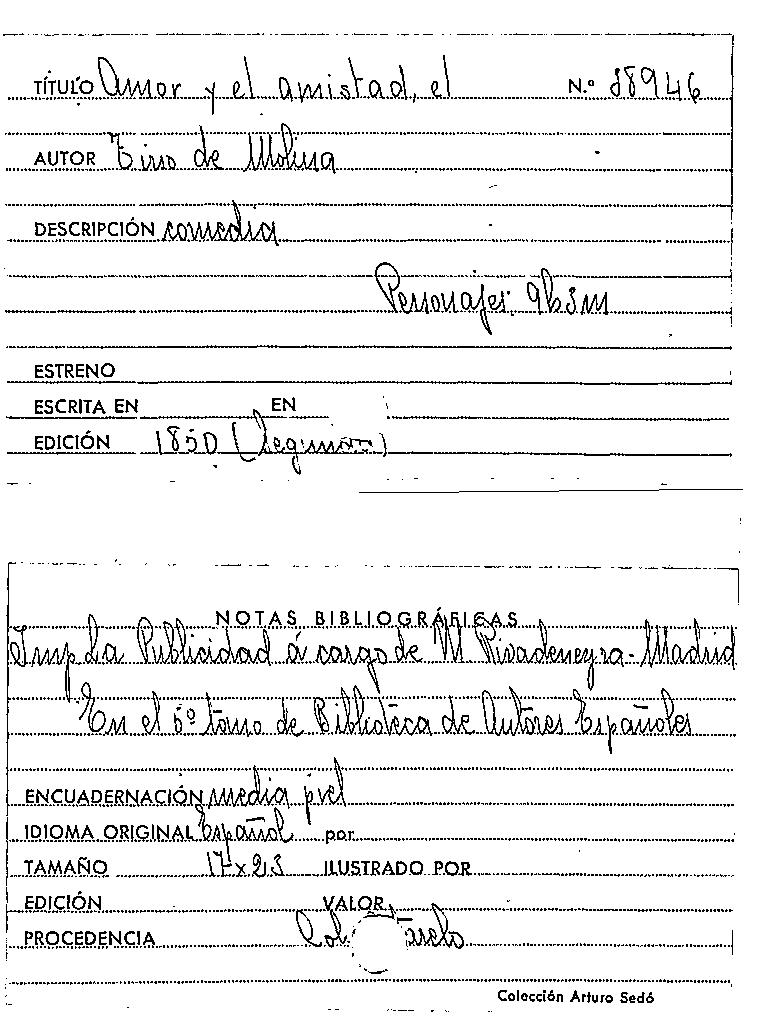 TÍTULO Amor y el amistad, el N.º 38946
AUTOR Tirso de Molina
DESCRIPCIÓN comedia
Personajes: 9h3m
ESTRENO
ESCRITA EN EN
EDICIÓN 1850 (Segunda)
NOTAS BIBLIOGRÁFICAS
Imp La Publicidad á cargo de M Rivadeneyra - Madrid
En el 5º tomo de Biblioteca de Autores Españoles
ENCUADERNACIÓN media piel
IDIOMA ORIGINAL Español por
TAMAÑO 17x23 ILUSTRADO POR
EDICIÓN VALOR
PROCEDENCIA Col.
Colección Arturo Sedó